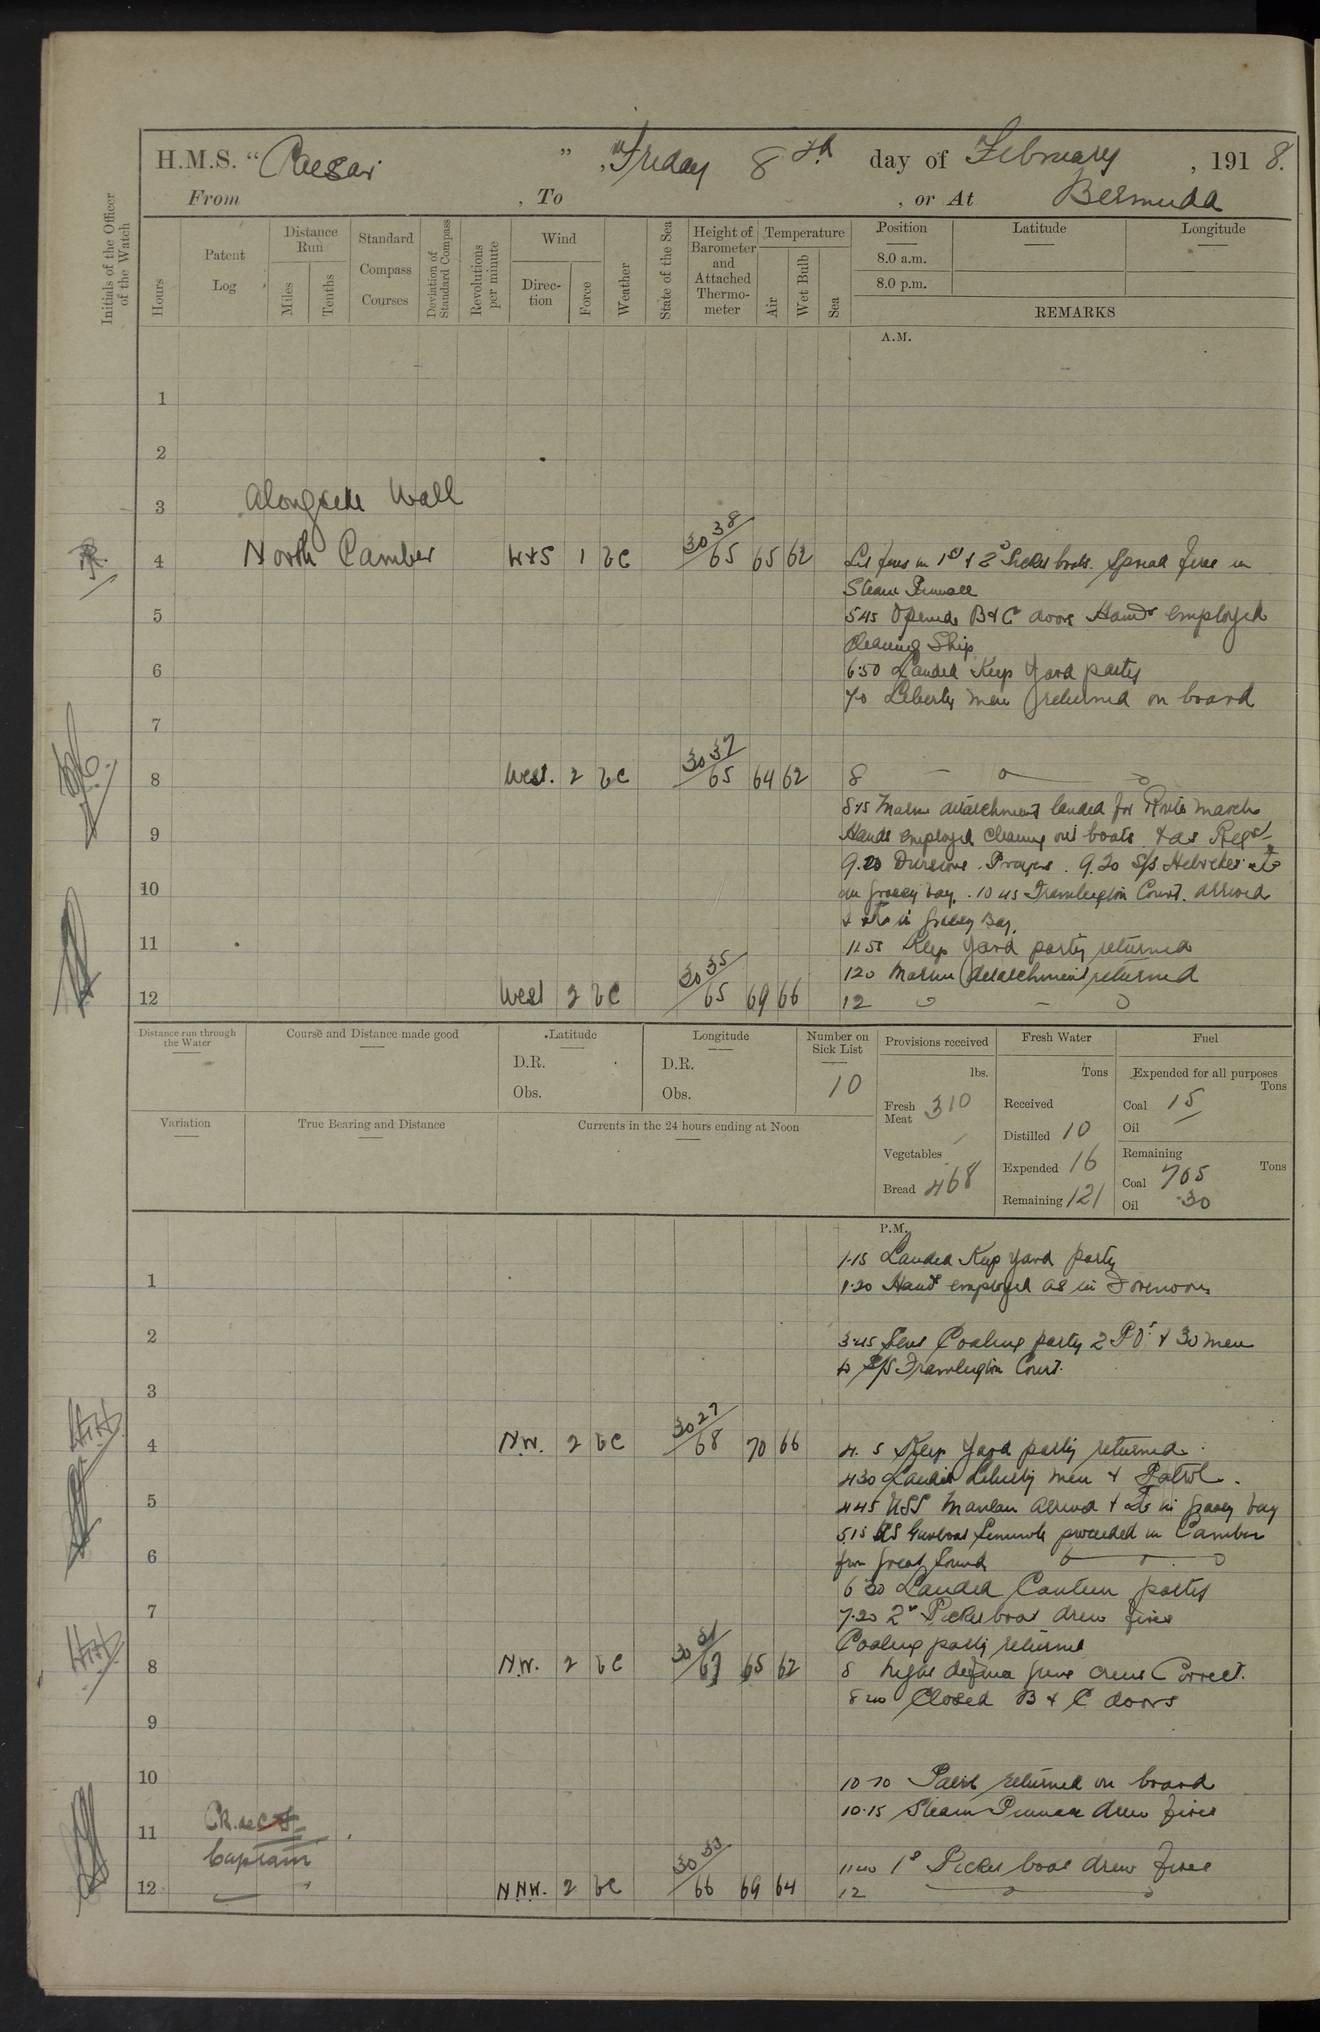 H.M.S. "Caesar", Friday 8th day of February, 1918.
From , To , or At Bermuda
Initials of the Officer of the Watch
Hours
Patent Log
Distance Run
Miles
Tenths
Standard Compass Courses
Deviation of Standard Compass
Revolutions per minute
Wind
Direction
Force
Weather
State of the Sea
Height of Barometer and Attached Thermometer
Temperature
Air
Wet Bulb
Sea
Position
Latitude
Longitude
8.0 a.m.
8.0 p.m.
REMARKS
A.M.
1
2
3 Alongside Wall
4 North Camber WxS 1 bc 30 38/65 65 62 Lit fires in 1st & 2d Picket boats. Spread fires in
Steam Pinnace
5 545 Opened B & C doors Hands employed
cleaning Ship
6 6.50 Landed Keep Yard party
7.0 Liberty men returned on board
7
8 West. 2 bc 30 37/65 64 62 8
845 Marine detachment landed for Route march
9 Hands employed cleaning out boats & as Reqd
9.20 Divisions. Prayers. 9.20 S/S
10 in Grassy bay. 10 45 Framlington Court. arrived
& in Grassy Bay.
11 11.55 Keep Yard party returned
120 Marine detachment returned
12 West 2 bc 30 35/65 69 66 12
Distance run through the Water
Course and Distance made good
Latitude
D.R.
Obs.
Longitude
D.R.
Obs.
Number on Sick List
10
Provisions received
lbs.
Fresh Meat 310
Vegetables /
Bread 468
Fresh Water
Tons
Received
Distilled 10
Expended 16
Remaining 121
Fuel
Expended for all purposes
Tons
Coal 15
Oil /
Remaining
Tons
Coal 705
Oil 30
Variation
True Bearing and Distance
Currents in the 24 hours ending at Noon
P.M.
1.15 Landed Keep Yard party
1 1.20 Hands employed as in Forenoon
2 3.45 Sent Coaling party 2 POs & 30 men
to S/S Framlington Court.
3
4 N.W. 2 bc 30 27/68 70 66 4. 5 Keep Yard party returned.
430 Landed Liberty men & Patrol.
5 445 USS arrived & in Grassy bay
5.15 US Gunboat proceeded in Camber
6 from Great Sound
6 30 Landed Canteen party
7 7.20 2d Picket boat drew fires
Coaling party returned
8 N.W. 2 bc 30 31/67 65 62 8 Night defence guns crews Correct.
8 40 Closed B & C doors
9
10 10 10 Patrol returned on board
10.15 Steam Pinnace drew fires
11
Captain
11 40 1st Picket boat drew fires
12 N.N.W. 2 bc 30 33/66 69 64 12